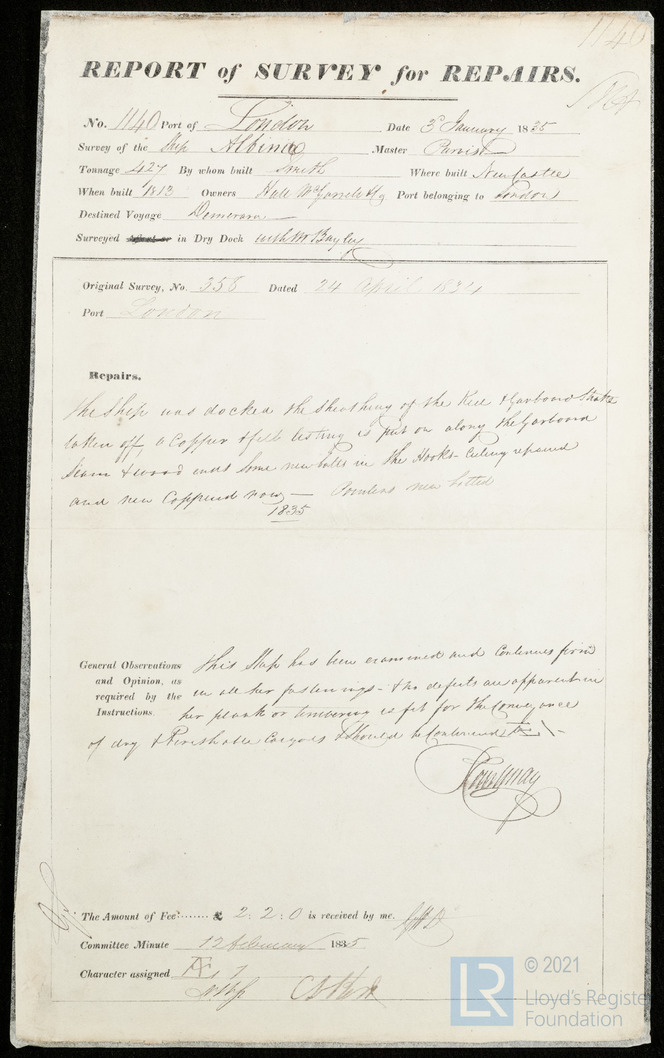 1140
REPORT of SURVEY for REPAIRS.
No. 1140 Port of London Date 3d January 1835
Survey of the Ship Albina Master Parish
Tonnage 427 By whom built Smith Where built Newcastle
When built 1813 Owners Hall Port belonging to London
Destined Voyage Demerara
Surveyed in Dry Dock with Mr Bayley
Original Survey, No. 358 Dated 24 April 1834
Port London
Repairs.
The Ship was docked the sheathing of the Keel & Garboard Strake
taken off, a Copper & felt is put on along the Garboard
Seam & wood ends Some new bolts in the Hooks - Ceiling repaired
and new Coppered now — Pointers new bolted
1835
General Observations and Opinion, as required by the Instructions.
This Ship has been examined and Continues firm
in all her fastenings - & no defects are apparent in
her plank or timbering is fit for the Conveyance
of dry & Perishable Cargoes & Should be Continued Æ 1.
Courtenay
The Amount of Fee £ 2:2:0 is received by me.
Committee Minute 12 February 1835
Character assigned Æ 1
© 2021
LR
Lloyd's Register
Foundation